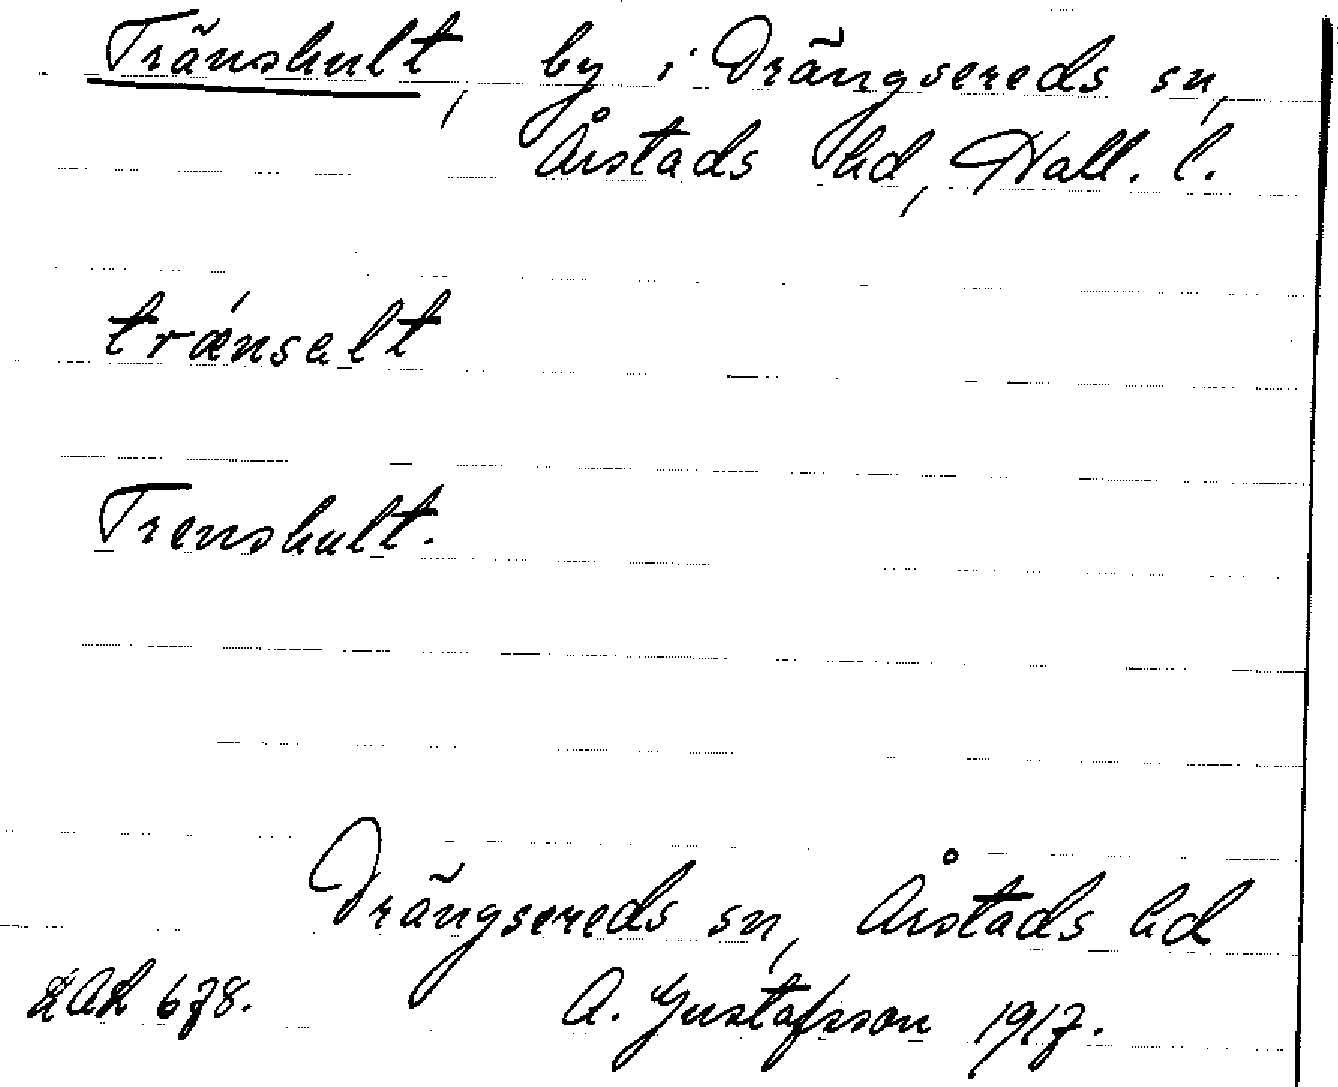 Tränshult, by i Drängsereds sn,
Årstads hd, Hall. l.
trǽnsalt
Trenshult.
Drängsereds sn, Årstads hd
678. A. Gustafsson 1917.